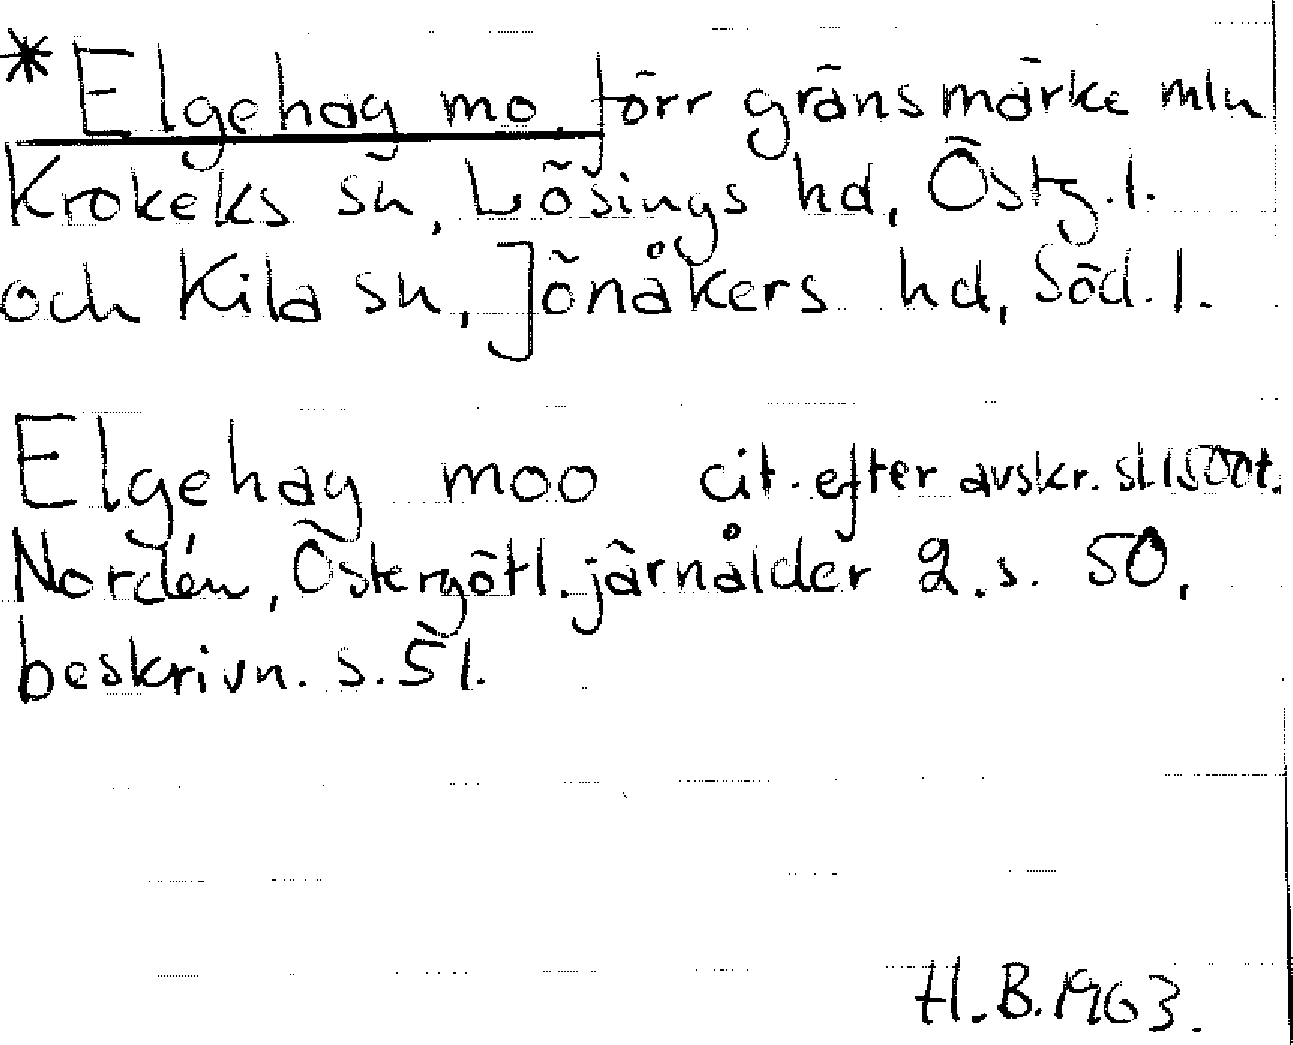 * Elgehag mo förr gränsmärke mln
Krokeks sn, Lösings hd, Östg.l.
och Kila sn, Jönåkers hd, Söd.l.
Elgehag moo cit. efter avskr. sl 1500t.
Nordén, Östergötl. järnålder 2. s. 50,
beskrivn. s. 51.
H.B. 1963.